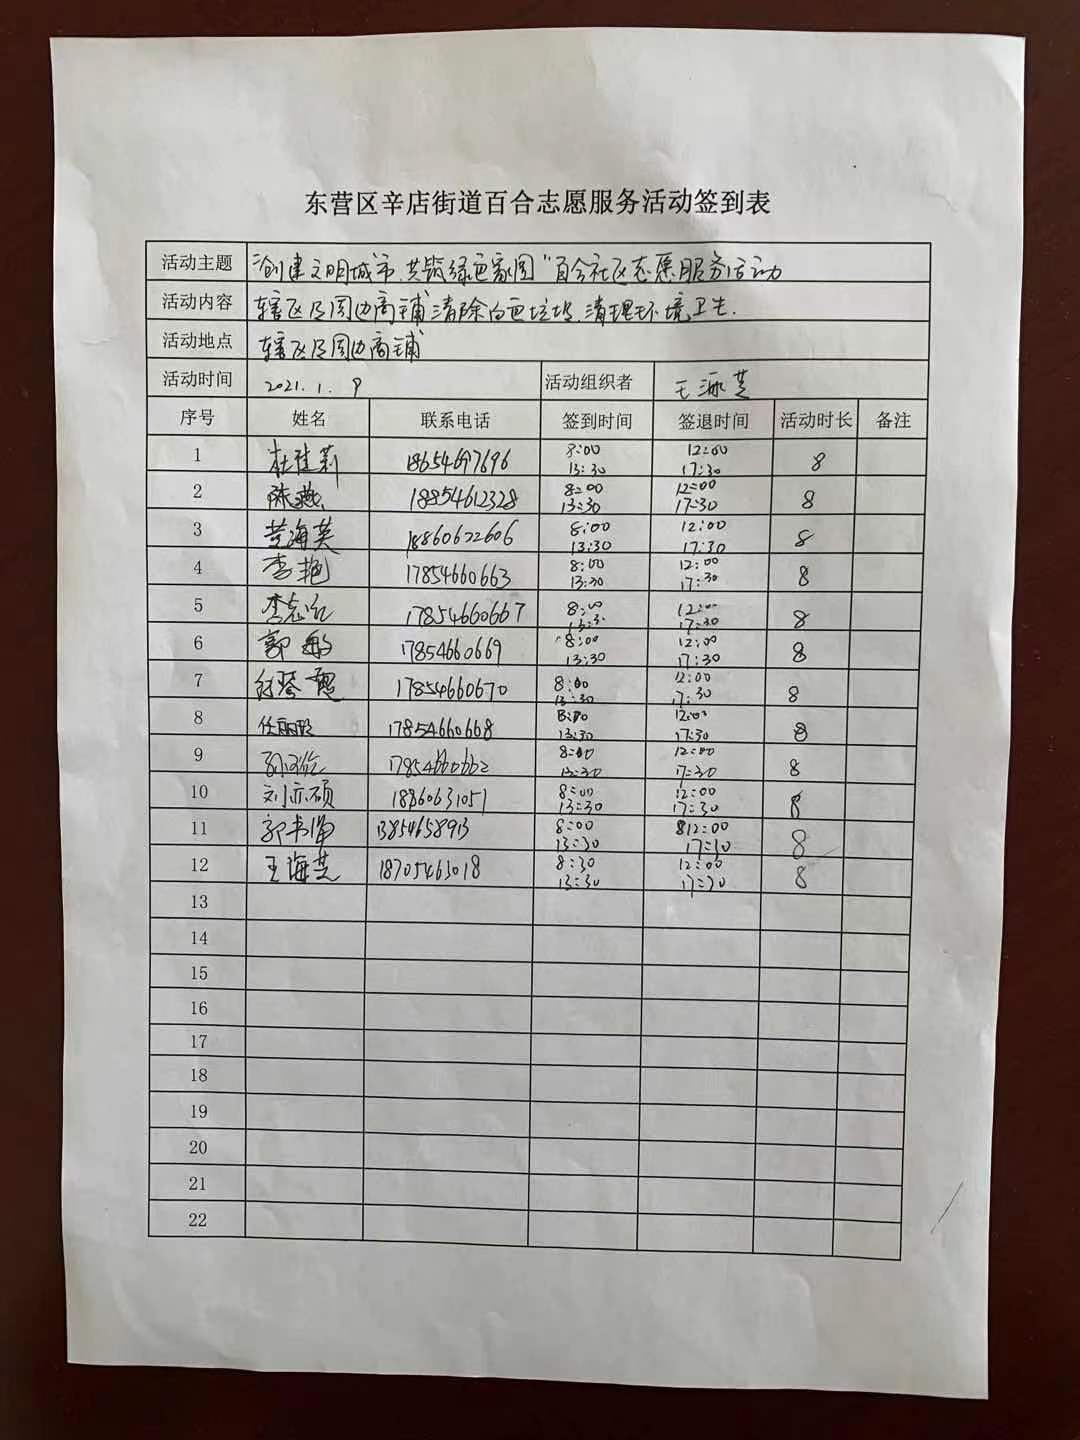 东营区辛店街道百合志愿服务活动签到表
活动主题 "创建文明城市、共筑绿色家园"百合社区志愿服务活动
活动内容 辖区及周边商铺清除白色垃圾、清理环境卫生.
活动地点 辖区及周边商铺
活动时间 2021.1.9 活动组织者 王海芝
序号 姓名 联系电话 签到时间 签退时间 活动时长 备注
1 杜佳莉 18654697696 8:00 13:30 12:00 17:30 8
2 陈燕 18854612328 8:00 13:30 12:00 17:30 8
3 黄海英 18860622606 8:00 13:30 12:00 17:30 8
4 李艳 17854660663 8:00 13:30 12:00 17:30 8
5 李志红 17854660667 8:00 13:30 12:00 17:30 8
6 郭敏 17854660669 8:00 13:30 12:00 17:30 8
7 17854660670 8:00 13:30 12:00 17:30 8
8 任丽 17854660668 8:00 13:30 12:00 17:30 8
9 17854660662 8:00 13:30 12:00 17:30 8
10 刘亦硕 18860631051 8:00 13:30 12:00 17:30 8
11 郭书 13854658913 8:00 13:30 12:00 17:30 8
12 王海芝 18705463018 8:30 13:30 12:00 17:30 8
13
14
15
16
17
18
19
20
21
22